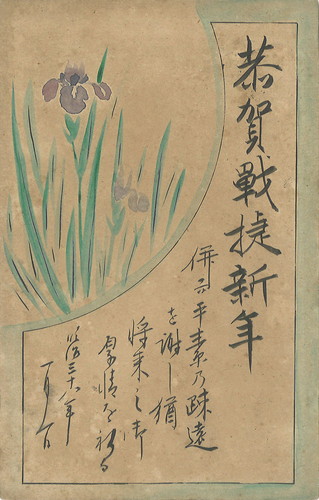 恭賀戰捷新年
併而平素乃疎遠
を謝し猶
将来之御
厚情を祈る
明治三十八年
一月一日